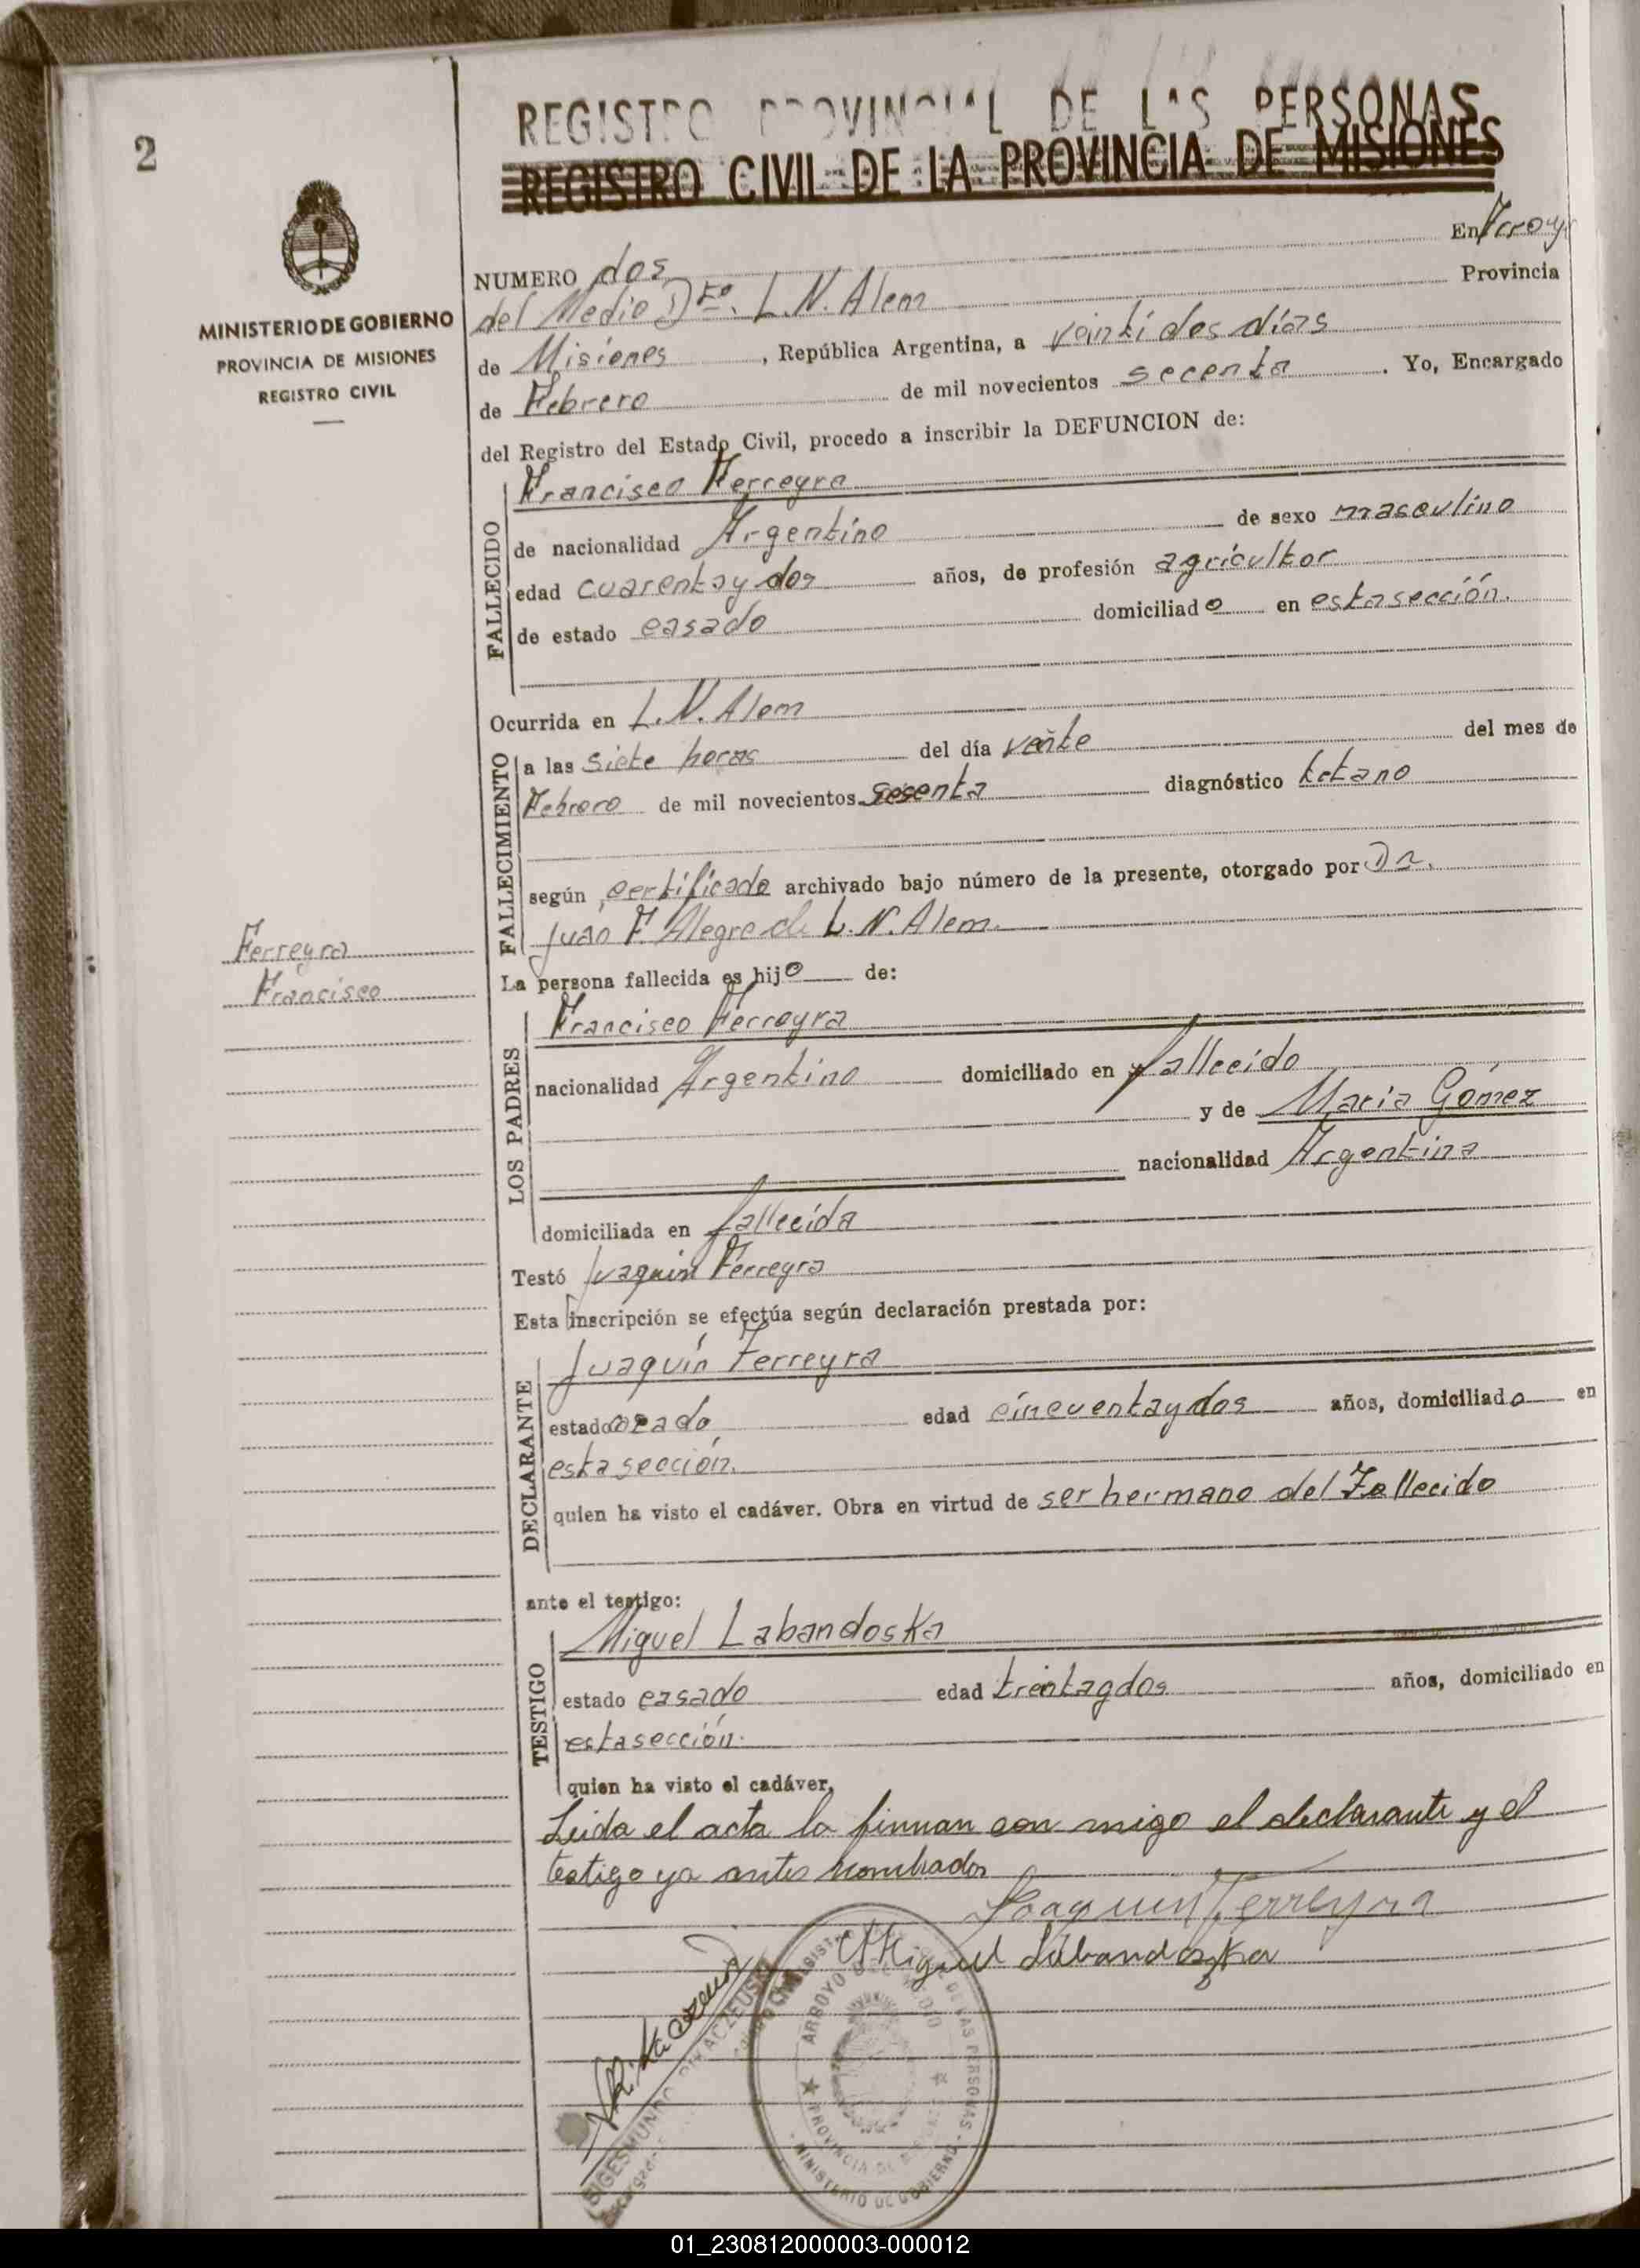 2
REGISTRO PROVINCIAL DE LAS PERSONAS
REGISTRO CIVIL DE LA PROVINCIA DE MISIONES
MINISTERIO DE GOBIERNO
PROVINCIA DE MISIONES
REGISTRO CIVIL
NUMERO dos En Arroyo
del Medio Dto. L.N. Alem Provincia
de Misiones, República Argentina, a veinti dos días
de Febrero de mil novecientos secenta. Yo, Encargado
del Registro del Estado Civil, procedo a inscribir la DEFUNCION de:
FALLECIDO
Francisco Ferreyra
de nacionalidad Argentino de sexo masculino
edad cuarentaydos años, de profesión agricultor
de estado casado domiciliado en esta sección.
Ocurrida en L.N. Alem
FALLECIMIENTO
a las siete horas del día veinte del mes de
Febrero de mil novecientos sesenta diagnóstico tetano
según certificado archivado bajo número de la presente, otorgado por Dr.
Juan F. Alegre de L.N. Alem.
Ferreyra
Francisco
La persona fallecida es hijo de:
LOS PADRES
Francisco Ferreyra
nacionalidad Argentino domiciliado en fallecido
y de Maria Gómez
nacionalidad Argentina
domiciliada en fallecida
Testó Juaquin Ferreyra
Esta inscripción se efectúa según declaración prestada por:
DECLARANTE
Juaquín Ferreyra
estado casado edad cincuentaydos años, domiciliado en
esta sección.
quien ha visto el cadáver. Obra en virtud de ser hermano del Fallecido
ante el testigo:
TESTIGO
Miguel Labandoska
estado casado edad treintaydos años, domiciliado en
esta sección.
quien ha visto el cadáver,
Leida el acta la firman con migo el declarante y el
testigo ya antes nombrados
Joaquin Ferreyra
Miguel Labandozka
ARROYO DEL MEDIO
DE LAS PERSONAS
PROVINCIA DE MISIONES
MINISTERIO DE GOBIERNO
01_230812000003-000012